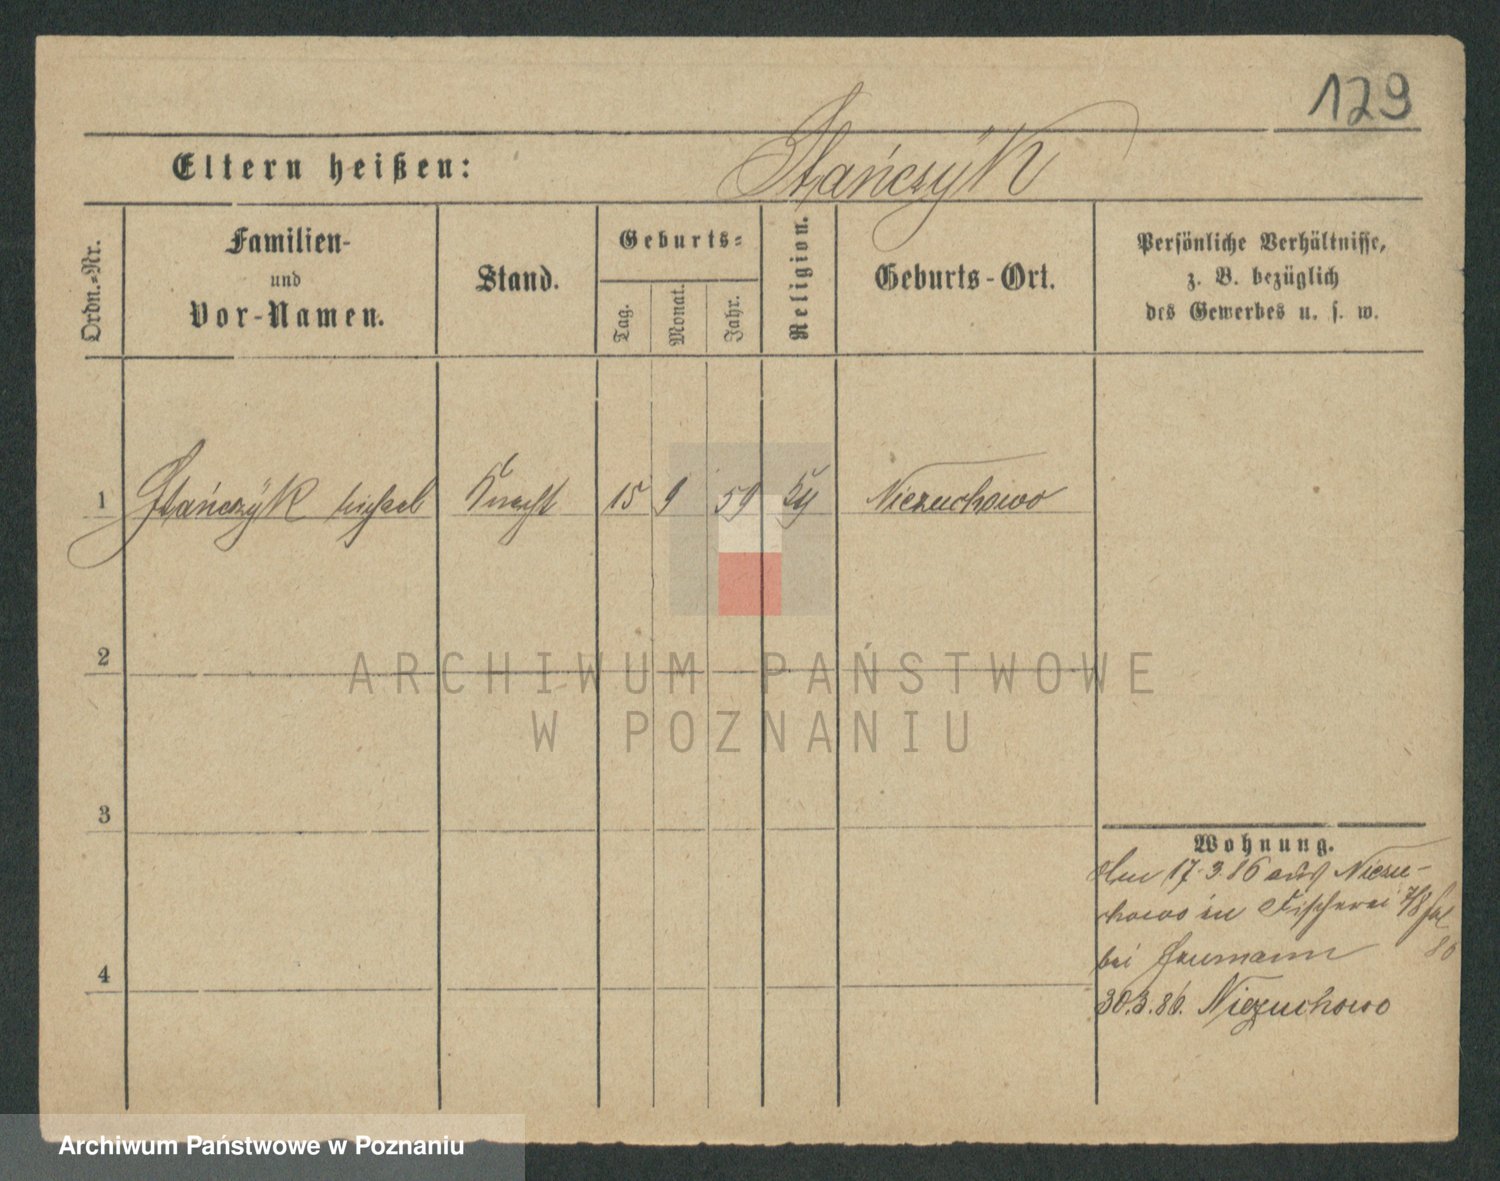 129
Eltern heißen: Stańczÿk
Ordn.-Nr.
Familien-
und
Vor-Namen.
Stand.
Geburts-
Tag.
Monat.
Jahr.
Religion.
Geburts-Ort.
Persönliche Verhältnisse,
z. B. bezüglich
des Gewerbes u. s. w.
1 Stańczÿk Knecht 15 9 59 Niezuchowo
2
3
4
Wohnung.
Am 17.3.86 aus Niezu-
chowo in Fischerei 7/8
bei
86
30.3.86. Niezuchowo
ARCHIWUM PAŃSTWOWE
W POZNANIU
Archiwum Państwowe w Poznaniu